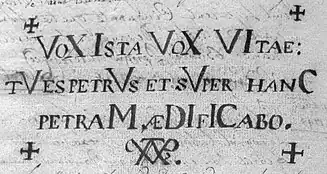 VOX ISTA VOX VITAE:
TVES PETRVS ET SVPER HANC
PETRAM, ÆDIFICABO.